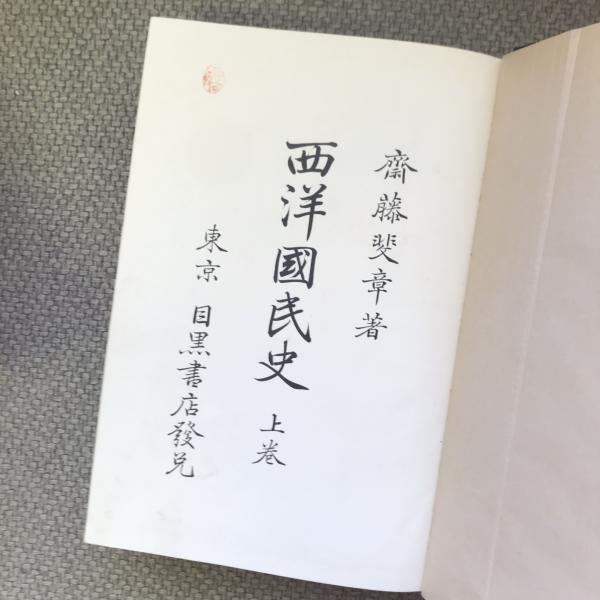 齋藤斐章著
西洋國民史 上巻
東京 目黒書店發兌